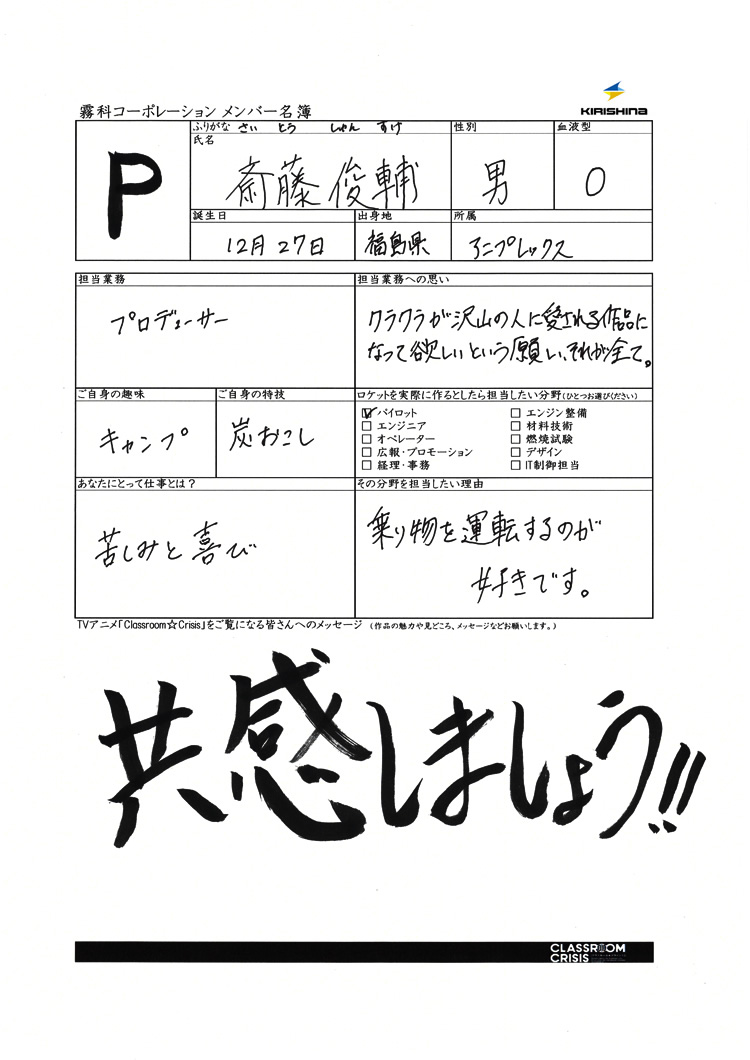 KIRISHINA
霧科コーポレーション メンバー名簿
P
ふりがな さい とう しゅん すけ
氏名
斎藤俊輔
性別
男
血液型
O
誕生日
12月27日
出身地
福島県
所属
アニプレックス
担当業務
プロデューサー
担当業務への思い
クラクラが沢山の人に愛される作品に
なって欲しいという願い、それが全て。
ご自身の趣味
キャンプ
ご自身の特技
炭おこし
ロケットを実際に作るとしたら担当したい分野(ひとつお選びください)
☑パイロット
□エンジニア
□オペレーター
□広報・プロモーション
□経理・事務
□エンジン整備
□材料技術
□燃焼試験
□デザイン
□IT制御担当
あなたにとって仕事とは?
苦しみと喜び
その分野を担当したい理由
乗り物を運転するのが
好きです。
TVアニメ「Classroom☆Crisis」をご覧になる皆さんへのメッセージ (作品の魅力や見どころ、メッセージなどお願いします。)
共感しましょう!!
CLASSROOM
CRISIS